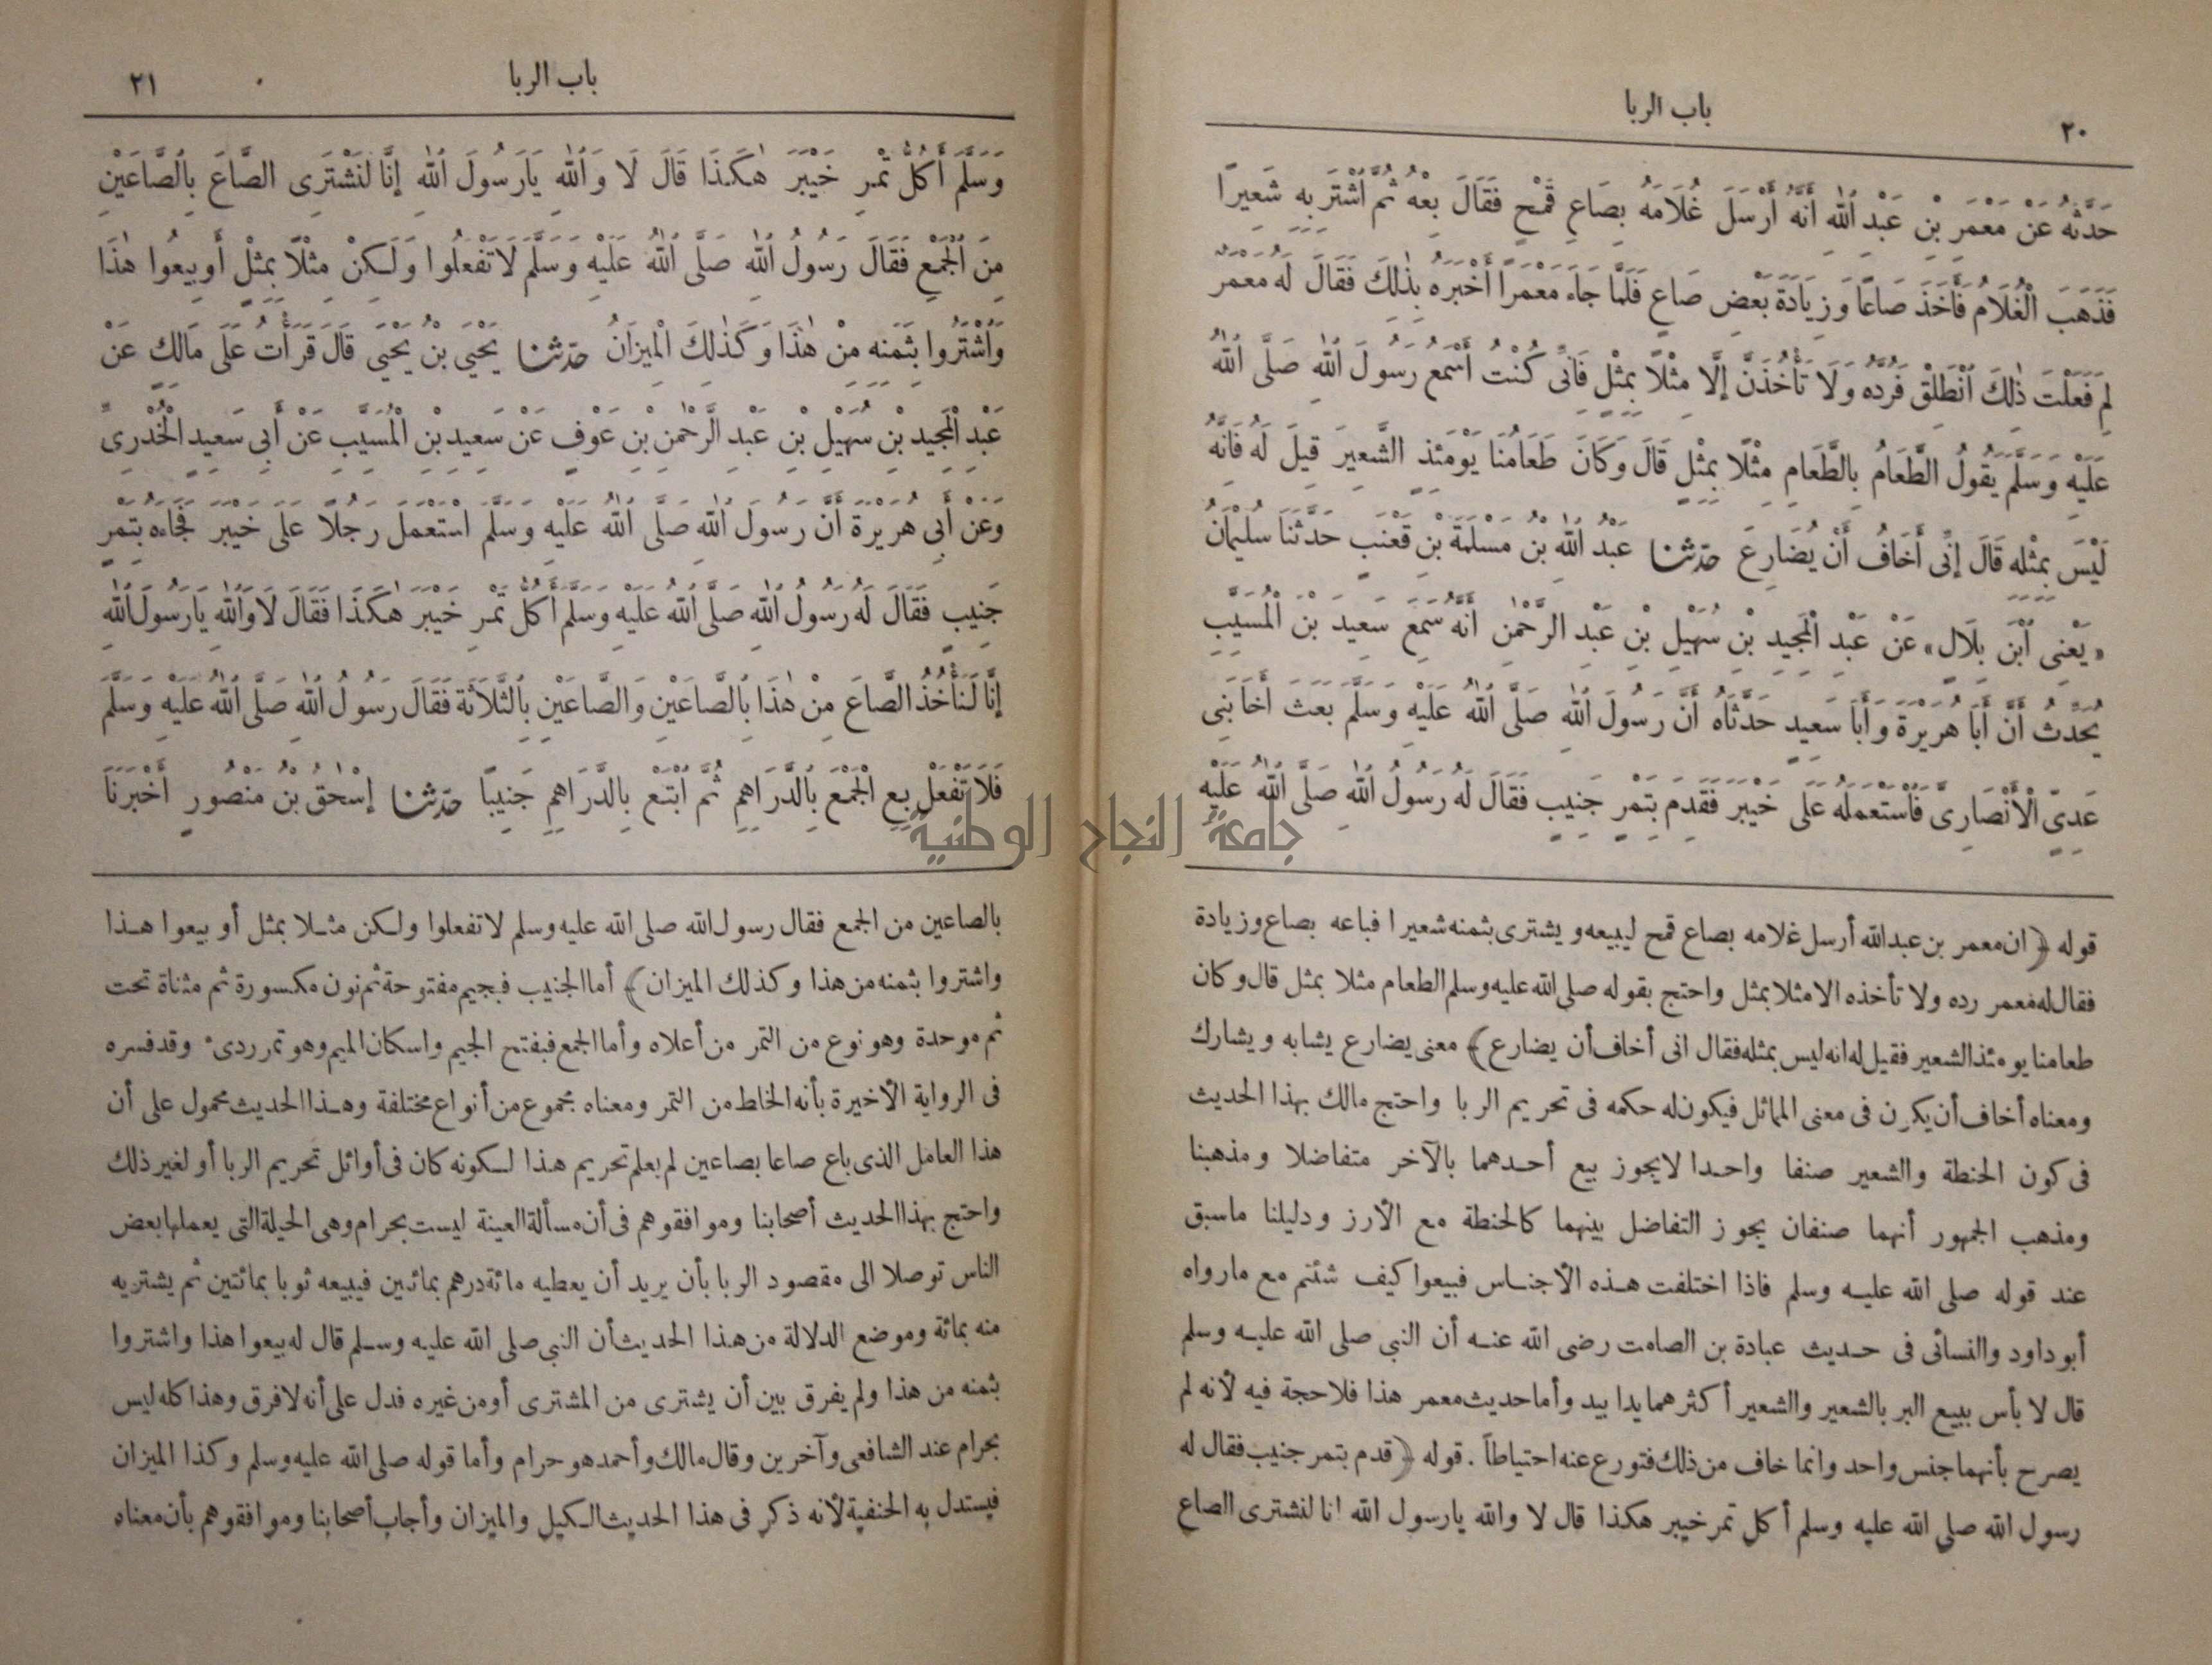 باب الربا
٢٠
حَدَّثَهُ عَنْ مَعْمَرِ بْنِ عَبْدِ اللهِ أَنَّهُ أَرْسَلَ غُلَامَهُ بِصَاعِ قَمْحٍ فَقَالَ بِعْهُ ثُمَّ اشْتَرِ بِهِ شَعِيرًا
فَذَهَبَ الْغُلَامُ فَأَخَذَ صَاعًا وَزِيَادَةَ بَعْضِ صَاعٍ فَلَمَّا جَاءَ مَعْمَرًا أَخْبَرَهُ بِذَلِكَ فَقَالَ لَهُ مَعْمَرٌ
لِمَ فَعَلْتَ ذَلِكَ انْطَلِقْ فَرُدَّهُ وَلَا تَأْخُذَنَّ إِلَّا مِثْلًا بِمِثْلٍ فَإِنِّى كُنْتُ أَسْمَعُ رَسُولَ اللهِ صَلَّى اللهُ
عَلَيْهِ وَسَلَّمَ يَقُولُ الطَّعَامُ بِالطَّعَامِ مِثْلًا بِمِثْلٍ قَالَ وَكَانَ طَعَامُنَا يَوْمَئِذٍ الشَّعِيرَ قِيلَ لَهُ فَإِنَّهُ
لَيْسَ بِمِثْلِهِ قَالَ إِنِّى أَخَافُ أَنْ يُضَارِعَ حدثنا عَبْدُ اللهِ بْنُ مَسْلَمَةَ بْنِ قَعْنَبٍ حَدَّثَنَا سُلَيْمَانُ
«يَعْنِى ابْنَ بِلَالٍ» عَنْ عَبْدِ الْمَجِيدِ بْنِ سُهَيْلِ بْنِ عَبْدِ الرَّحْمٰنِ أَنَّهُ سَمِعَ سَعِيدَ بْنَ الْمُسَيَّبِ
يُحَدِّثُ أَنَّ أَبَا هُرَيْرَةَ وَأَبَا سَعِيدٍ حَدَّثَاهُ أَنَّ رَسُولَ اللهِ صَلَّى اللهُ عَلَيْهِ وَسَلَّمَ بَعَثَ أَخَا بَنِى
عَدِىٍّ الْأَنْصَارِىَّ فَاسْتَعْمَلَهُ عَلَى خَيْبَرَ فَقَدِمَ بِتَمْرٍ جَنِيبٍ فَقَالَ لَهُ رَسُولُ اللهِ صَلَّى اللهُ عَلَيْهِ
قوله ﴿ان معمر بن عبد الله أرسل غلامه بصاع قمح ليبيعه ويشترى بثمنه شعيرا فباعه بصاع وزيادة
فقال له معمر رده ولا تأخذه الا مثلا بمثل واحتج بقوله صلى الله عليه وسلم الطعام مثلا بمثل قال وكان
طعامنا يومئذ الشعير فقيل له انه ليس بمثله فقال انى أخاف أن يضارع﴾ معنى يضارع يشابه ويشارك
ومعناه أخاف أن يكون فى معنى المماثل فيكون له حكمه فى تحريم الربا واحتج مالك بهذا الحديث
فى كون الحنطة والشعير صنفا واحدا لا يجوز بيع أحدهما بالآخر متفاضلا ومذهبنا
ومذهب الجمهور أنهما صنفان يجوز التفاضل بينهما كالحنطة مع الأرز ودليلنا ما سبق
عند قوله صلى الله عليه وسلم فاذا اختلفت هذه الأجناس فبيعوا كيف شئتم مع ما رواه
أبو داود والنسائى فى حديث عبادة بن الصامت رضى الله عنه أن النبى صلى الله عليه وسلم
قال لا بأس ببيع البر بالشعير والشعير أكثرهما يدا بيد وأما حديث معمر هذا فلا حجة فيه لأنه لم
يصرح بأنهما جنس واحد وانما خاف من ذلك فتورع عنه احتياطاً . قوله ﴿قدم بتمر جنيب فقال له
رسول الله صلى الله عليه وسلم أكل تمر خيبر هكذا قال لا والله يا رسول الله انا لنشترى الصاع
باب الربا
٢١
وَسَلَّمَ أَكُلُّ تَمْرِ خَيْبَرَ هٰكَذَا قَالَ لَا وَاللهِ يَا رَسُولَ اللهِ إِنَّا لَنَشْتَرِى الصَّاعَ بِالصَّاعَيْنِ
مِنَ الْجَمْعِ فَقَالَ رَسُولُ اللهِ صَلَّى اللهُ عَلَيْهِ وَسَلَّمَ لَا تَفْعَلُوا وَلَكِنْ مِثْلًا بِمِثْلٍ أَوْ بِيعُوا هٰذَا
وَاشْتَرُوا بِثَمَنِهِ مِنْ هٰذَا وَكَذٰلِكَ الْمِيزَانُ حدثنا يَحْيَى بْنُ يَحْيَى قَالَ قَرَأْتُ عَلَى مَالِكٍ عَنْ
عَبْدِ الْمَجِيدِ بْنِ سُهَيْلِ بْنِ عَبْدِ الرَّحْمٰنِ بْنِ عَوْفٍ عَنْ سَعِيدِ بْنِ الْمُسَيَّبِ عَنْ أَبِى سَعِيدٍ الْخُدْرِىِّ
وَعَنْ أَبِى هُرَيْرَةَ أَنَّ رَسُولَ اللهِ صَلَّى اللهُ عَلَيْهِ وَسَلَّمَ اسْتَعْمَلَ رَجُلًا عَلَى خَيْبَرَ فَجَاءَهُ بِتَمْرٍ
جَنِيبٍ فَقَالَ لَهُ رَسُولُ اللهِ صَلَّى اللهُ عَلَيْهِ وَسَلَّمَ أَكُلُّ تَمْرِ خَيْبَرَ هٰكَذَا فَقَالَ لَا وَاللهِ يَا رَسُولَ اللهِ
إِنَّا لَنَأْخُذُ الصَّاعَ مِنْ هٰذَا بِالصَّاعَيْنِ وَالصَّاعَيْنِ بِالثَّلَاثَةِ فَقَالَ رَسُولُ اللهِ صَلَّى اللهُ عَلَيْهِ وَسَلَّمَ
فَلَا تَفْعَلْ بِعِ الْجَمْعَ بِالدَّرَاهِمِ ثُمَّ ابْتَعْ بِالدَّرَاهِمِ جَنِيبًا حدثنا إِسْحٰقُ بْنُ مَنْصُورٍ أَخْبَرَنَا
بالصاعين من الجمع فقال رسول الله صلى الله عليه وسلم لا تفعلوا ولكن مثلا بمثل أو بيعوا هذا
واشتروا بثمنه من هذا وكذلك الميزان﴾ أما الجنيب فبجيم مفتوحة ثم نون مكسورة ثم مثناة تحت
ثم موحدة وهو نوع من التمر من أعلاه وأما الجمع فبفتح الجيم واسكان الميم وهو تمر ردىء وقد فسره
فى الرواية الأخيرة بأنه الخلط من التمر ومعناه مجموع من أنواع مختلفة وهذا الحديث محمول على أن
هذا العامل الذى باع صاعا بصاعين لم يعلم تحريم هذا لكونه كان فى أوائل تحريم الربا أو لغير ذلك
واحتج بهذا الحديث أصحابنا وموافقوهم فى أن مسألة العينة ليست بحرام وهى الحيلة التى يعملها بعض
الناس توصلا الى مقصود الربا بأن يريد أن يعطيه مائة درهم بمائتين فيبيعه ثوبا بمائتين ثم يشتريه
منه بمائة وموضع الدلالة من هذا الحديث أن النبى صلى الله عليه وسلم قال له بيعوا هذا واشتروا
بثمنه من هذا ولم يفرق بين أن يشترى من المشترى أو من غيره فدل على أنه لا فرق وهذا كله ليس
بحرام عند الشافعى وآخرين وقال مالك وأحمد هو حرام وأما قوله صلى الله عليه وسلم وكذا الميزان
فيستدل به الحنفية لأنه ذكر فى هذا الحديث الكيل والميزان وأجاب أصحابنا وموافقوهم بأن معناه
جامعة النجاح الوطنية